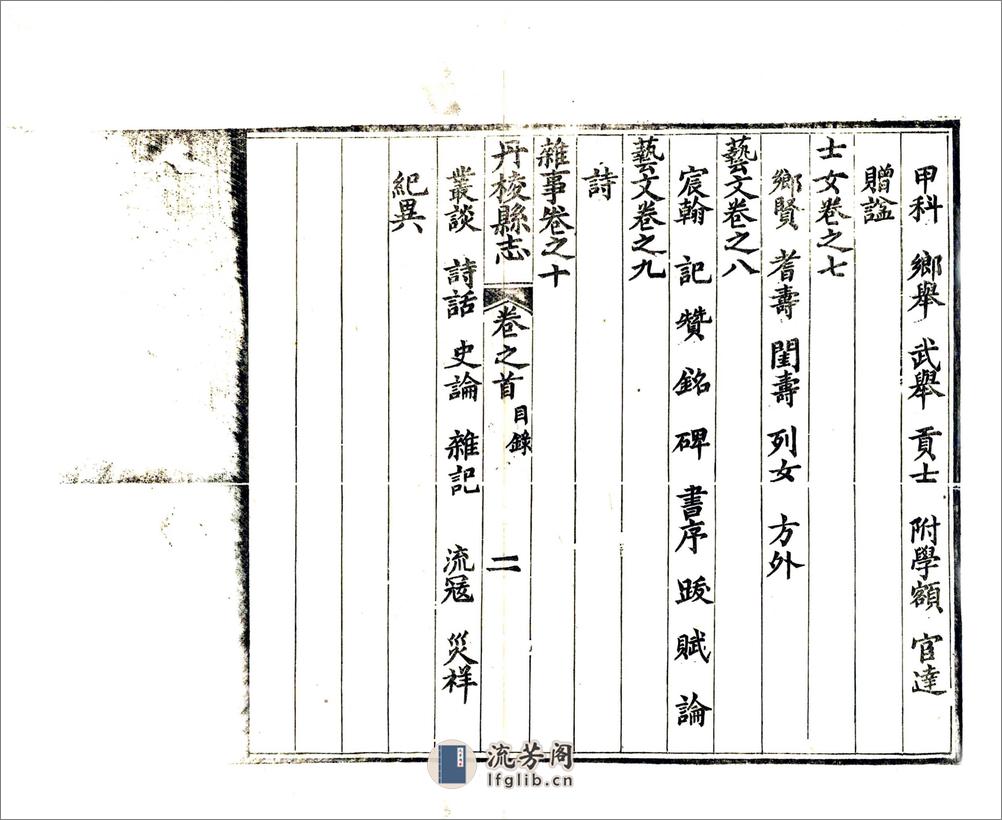 甲科 鄉舉 武舉 貢士 附學額 官達
贈謚
士女卷之七
鄉賢 耆壽 閨壽 列女 方外
藝文卷之八
宸翰 記 贊 銘 碑 書 序 跋 賦 論
藝文卷之九
詩
雜事卷之十
丹棱縣志 卷之首 目錄 二
叢談 詩話 史論 雜記 流寇 災祥
紀異
流芳阁
lfglib.cn